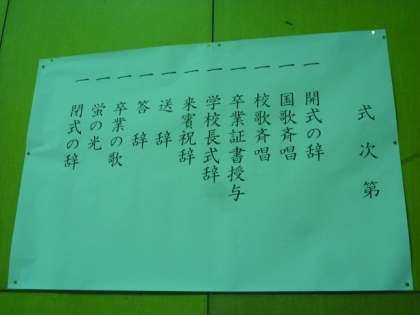 式次第
一 開式の辞
一 国歌斉唱
一 校歌斉唱
一 卒業証書授与
一 学校長式辞
一 来賓祝辞
一 送辞
一 答辞
一 卒業の歌
一 蛍の光
一 閉式の辞